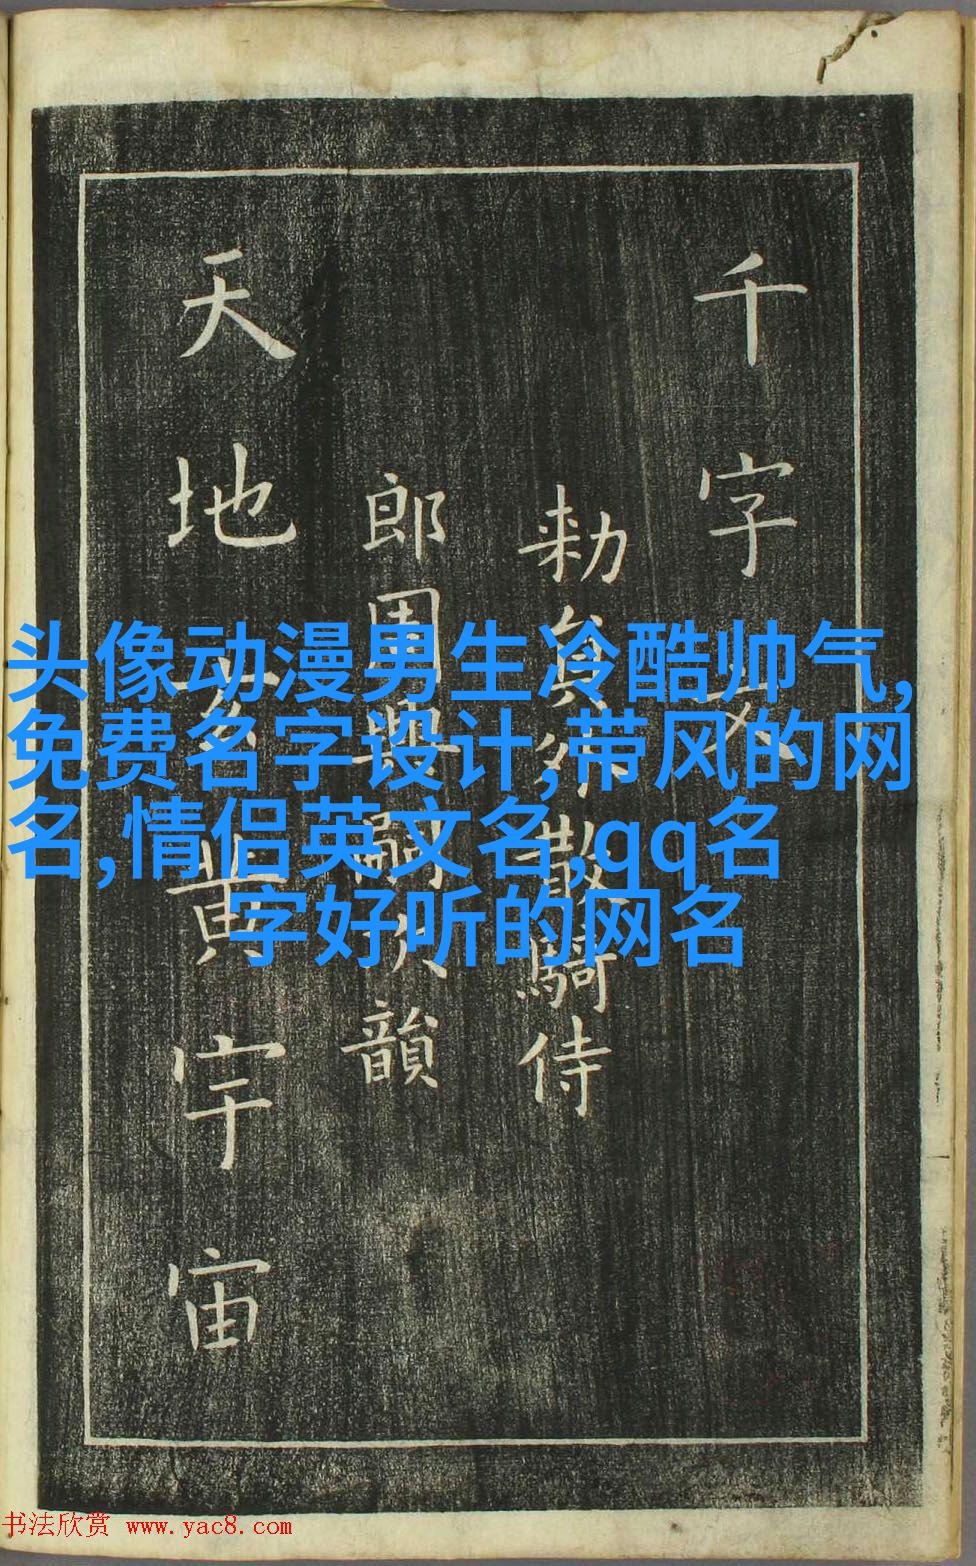 千字文
勅員外散騎侍
郎周興嗣次韻
天地玄黃宇宙
头像动漫男生冷酷帅气,
免费名字设计,带风的网
名,情侣英文名,qq名
字好听的网名
书法欣赏 www.yac8.com